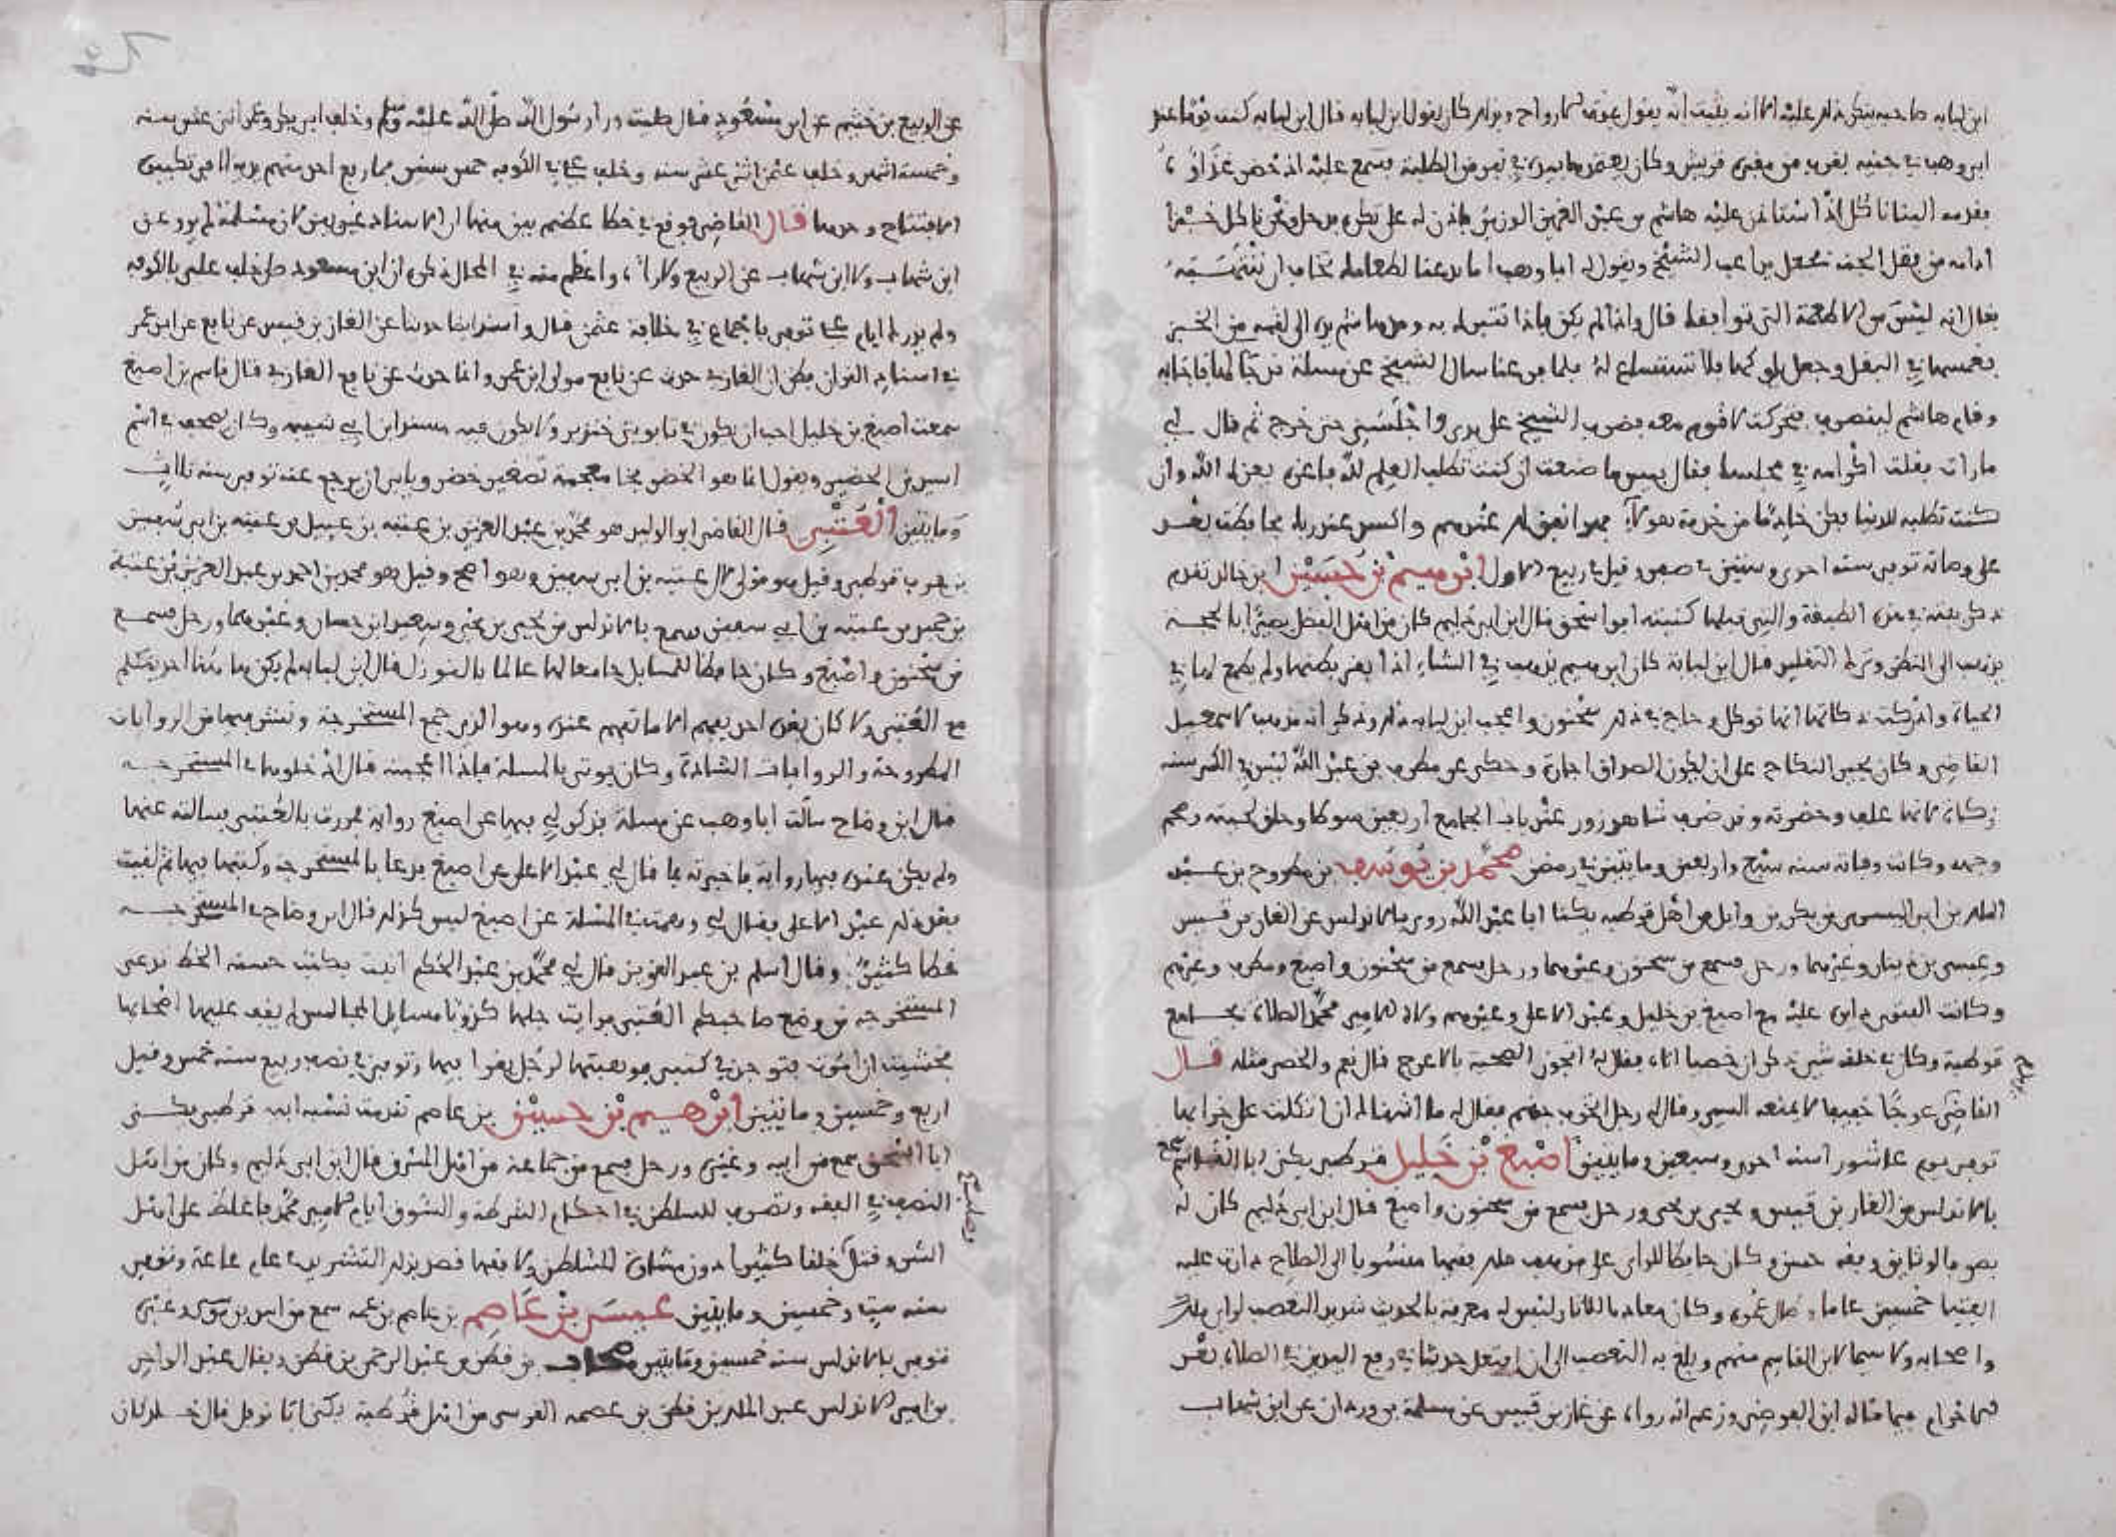 ابن لبابه صاحبه ينكر ذلك عليه الا انه يثبت انه يقول بموت الارواح وبذلك كان يقول ابن لبابه قال ابن لبابه كنت يوما عند
ابي وهب في حنيه بقرب من مقبرة قريش وكان بعض ما بيده في نفر من الطلبة نسمع عليه اذ حضر غداؤه
فقدمه الينا ناكل اذ استاذن عليه هاشم بن عبد العزيز الوزير فاذن له على نكره فدخل ونحن ناكل خبزا
ادامه من بقل الجنه فجعل يداعب الشيخ ويقول له ابا وهب اما تدعنا لطعامك تخاف ان
فقال انه ليس من الاطعمة التي توافقك قال واذا لم يكن فاذا نتبرك به ومد هاشم يده الى لقمة من الخبز
فغمسها في البقل وجعل يلوكها فلا تنساغ له فلما فرغنا سال الشيخ عن مسلة قد جا لها فاجابه
وقام هاشم لينصرف فتحركت لاقوم معه فضرب الشيخ على يدي واجلسني حتى خرج ثم قال لي
ما رات فقلت اكرامه في مجلسك فقال بيس ما صنعت ان كنت تطلب العلم لله فاعزه يعزك الله وان
كنت تطلبه للدنيا فكن خادما من خدمة هولاء فهو انفق لك عندهم واكسر عند ربك
على وصاته توفي سنة احدى وستين في صفر وقيل في ربيع الاول ابرهيم بن حسين بن خالد تقدم
ذكر بيته في هذه الطبقة والتي قبلها كنيته ابو اسحق قال ابن ابي دليم كان من اهل الفضل بصيرا بالحجة
يذهب الى النظر وترك التقليد قال ابن لبابة كان ابرهيم يذهب في الشاة اذا بقر بطنها ولم يطمع لها في
الحياة وادركت ذكاتها انها توكل وحاج في ذلك سحنون واعجب ابن لبابه ذلك وذكر انه مذهب لاسمعيل
القاضي وكان يجيز النكاح على ان يكون الصداق اجارة وحكى عن مطرف بن عبد الله ليس في التين
زكاة لانها علف وخضرته وقد ضرب شاهد زور عند باب الجامع اربعين سوطا وحلق لحيته وسخم
وجهه وكانت وفاته سنه سبع واربعين ومايتين في رمضن محمد بن يوسف بن مطروح بن عبد
الملك من ابي اليسير من بكر بن وايل من اهل قرطبه يكنا ابا عبد الله روى بالاندلس عن الغاز بن قيس
وعيسى بن دينار وغيرهما ورحل فسمع من سحنون وغيرهما ورحل فسمع من سحنون واصبغ ومطرف وغيرهم
وكانت الفتوى دايرة عليه مع اصبغ بن خليل وعبد الاعلى وغيرهم ولاه الامير محمد الصلاة بجامع
قرطبة وكان في خلقه شي ذكر ان خصيا اتاه فقال له اتجوز الضحية بالاعرج قال نعم والخصي مثله قال
القاضي عرجا خفيفا لا يمنعه السير وقال له رجل اتخرب جهنم فقال له ما اشقاك ان اتكلت على خرابها
توفي يوم عاشورا سنه احدى وسبعين ومايتين اصبغ بن خليل قرطبي يكنى ابا القاسم سمع
بالاندلس من الغاز بن قيس ويحيى بن يحيى ورحل فسمع من سحنون واصبغ قال ابن ابي دليم كان له
بصر بالوثايق وبقه حسن وكان حافظا للراي على مذهب ملك فقيها منسوبا الى الصلاح دارت عليه
الفتيا خمسين عاما وطال عمره وكان معاديا للاثار ليس له معرفة بالحديث شديد التعصب لراي ملك
واصحابه ولا سيما لابن القاسم منهم وبلغ به التعصب الى ان افتعل حديثا في رفع اليدين في الصلاة بعد
الاحرام فيما قاله ابن الفرضي وزعم انه رواه عن غاز بن قيس عن سلمة بن وردان عن ابن شهاب
عن الربيع بن خثيم عن ابن مسعود قال صليت ورا رسول الله صلى الله عليه وسلم وخلف ابي بكر وعمر اثني عشر سنه
وخمسة اشهر وخلف عثمن اثني عشر سنه وخلف علي بالكوفه خمس سنين فما رفع احد منهم يديه الا في تكبيرة
الافتتاح وحدها قال القاضي فوقع في خطا عظيم بين منها ان الاسناد غير بين لان مسلمة لم يرو عن
ابن شهاب ولا ابن شهاب عن الربيع ولا راه واعظم منه في المحال ذكره ان ابن مسعود صلى خلف علي بالكوفه
ولم يدرك ايام علي توفي باجماع في خلافة عثمن قال واسند ايضا حديثا عن الغاز بن قيس عن نافع عن ابن عمر
في اسناد القران فظن ان الغازي حدث عن نافع مولى ابن عمر وانما حدث عن نافع القاري قال قاسم بن اصبغ
سمعت اصبغ بن خليل احب ان يكون في تابوتي خنزير ولا يكون فيه مسند ابن ابي شيبه وكان يصحف في اسم
اسيد بن الحضير ويقول انما هو الخضر بخا معجمة تصغير خضر ويابى ان يرجع عنه توفي سنه ثلاث
ومايتين العتبي قال القاضي ابو الوليد هو محمد بن عبد العزيز بن عتبه بن حميد بن عتبه بن ابي سفين
بن حرب قرطبي وقيل هو مولى لال عتبه بن ابي سفين وهو اصح وقيل هو محمد بن احمد بن عبد العزيز بن عتبة
بن حميد بن عتبه بن ابي سفين سمع بالاندلس من يحيى بن يحيى وسعيد ابن حسان وغيرهما ورحل فسمع
من سحنون واصبغ وكان حافظا للمسايل جامعا لها عالما بالنوازل قال ابن لبابه لم يكن هاهنا احد يتكلم
مع العتبي ولا كان بعده احد يفهم الا ما تعلم عنده وهو الذي جمع المستخرجة وكثر فيها من الروايات
المطروحة والروايات الشاذة وكان يوتى بالمسلة فاذا اعجبته قال ادخلوها في المستخرجه
قال ابن وضاح سالت ابا وهب عن مسلة فذكر لي فيها عن اصبغ رواية فمررت بالعتبي فسالته عنها
ولم يكن عنده فيها رواية فاخبرته بما قال لي عبد الاعلى عن اصبغ فدعا بالمستخرجة وكتبها فيها ثم لقيت
بعد ذلك عبد الاعلى فقال لي وهمت في المسلة عن اصبغ ليس كذلك قال ابن وضاح في المستخرجه
خطا كثير وقال اسلم بن عبد العزيز قال لي محمد بن عبد الحكم اتيت بكتب حسنه الخط تدعى
المستخرجه من وضع صاحبكم العتبي فرايت جلها كذوبا مسايل المجالس لم يقف عليها اصحابها
فخشيت ان اموت فتوجد في كتبي فوهبتها لرجل يقرا فيها وتوفي في نصف ربيع سنه خمس وقيل
اربع وخمسين ومايتين ابرهيم بن حسين بن عاصم تقدمت نسبة ابيه قرطبي يكنى
ابا اسحق سمع من ابيه وغيره ورحل فسمع من جماعة من اهل المشرق قال ابن ابي دليم وكان من اهل
التصرف في الفقه وتصرف للسلطان في احكام الشرطة والسوق ايام الامير محمد فاغلظ على اهل
الشر وقتل خلقا كثيرا دون مشاورة السلطان ولا فقها قصد بذلك التشريد في عام مجاعة وتوفي
سنه ست وخمسين ومايتين عيسى بن عاصم بن عاصم بن عمه سمع من اسد بن موسى وغيره
فتوفي بالاندلس سنه خمسين ومايتين بن قطن بن عبد الرحمن بن قطن ويقال عبد الواحد
بن امير الاندلس عبد الملك بن قطن بن عصمه الفرسي من اهل قرطبة يكنى ابا نوفل قال